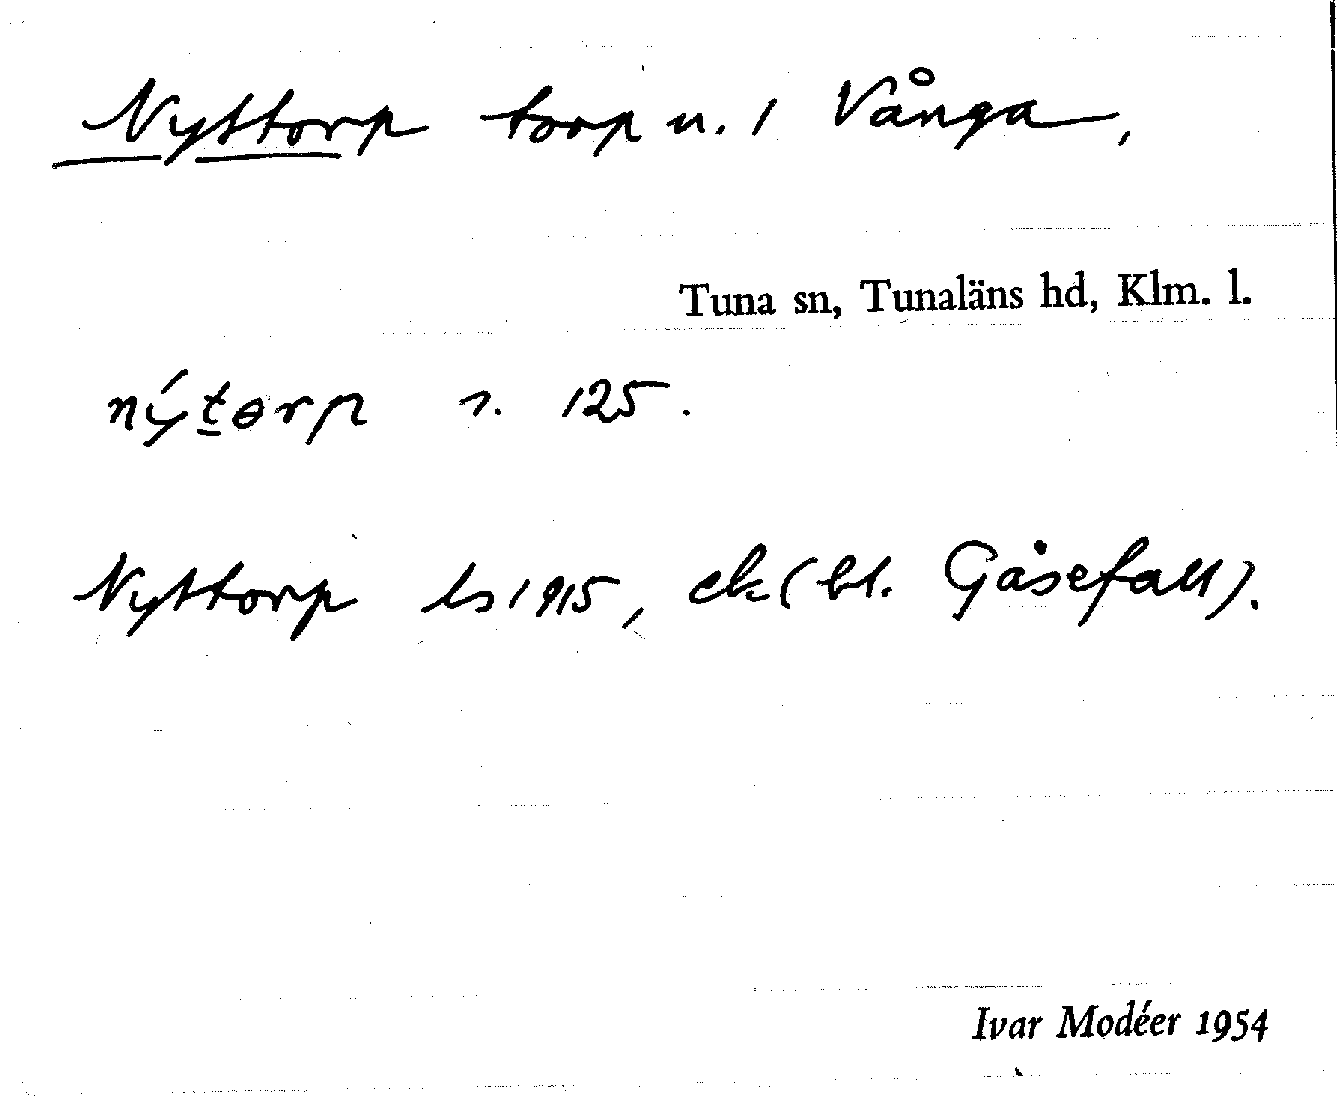 Nyttorp torp u. 1 Vånga,
Tuna sn, Tunaläns hd, Klm. l.
nýt̲ɵrp s. 125.
Nyttorp ls 1915, ek (bl. Gåsefall).
Ivar Modéer 1954